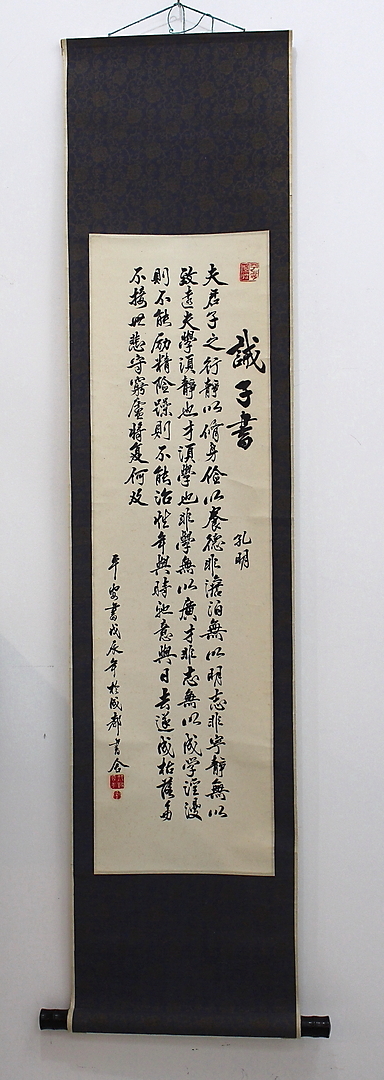 誡子書
孔明
夫君子之行靜以脩身儉以養德非澹泊無以明志非寧靜無以
致遠夫學須靜也才須學也非學無以廣才非志無以成学淫漫
則不能励精险躁則不能治性年與時馳意與日去遂成枯落多
不接世悲守窮廬將复何及
平安書戊辰年於成都書舍